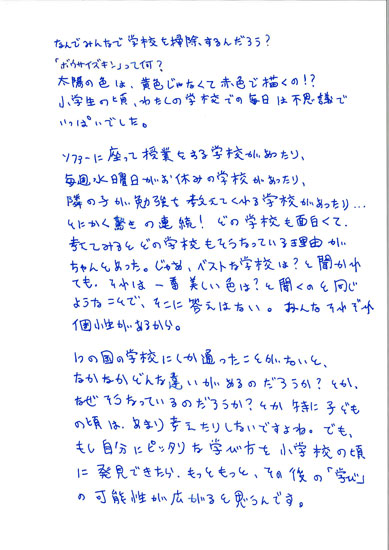 なんでみんなで学校を掃除するんだろう?
「ボウサイズキン」って何?
太陽の色は、黄色じゃなくて赤色で描くの!?
小学生の頃、わたしの学校での毎日は不思議で
いっぱいでした。
ソファーに座って授業をする学校があったり、
毎週水曜日がお休みの学校があったり、
隣の子が勉強を教えてくれる学校があったり…
とにかく驚きの連続! どの学校も面白くて、
考えてみるとどの学校もそうなっている理由が
ちゃんとあった。じゃあ、ベストな学校は?と聞かれ
ても、それは一番美しい色は?と聞くのと同じ
ようなことで、そこに答えはない。みんなそれぞれ
個性があるから。
1つの国の学校にしか通ったことがないと、
なかなかどんな違いがあるのだろうか?とか、
なぜそうなっているのだろうか?とか特に子ども
の頃は、あまり考えたりしないですよね。でも、
もし自分にピッタリな学び方を小学校の頃
に発見できたら、もっともっと、その後の「学び」
の可能性が広がると思うんです。